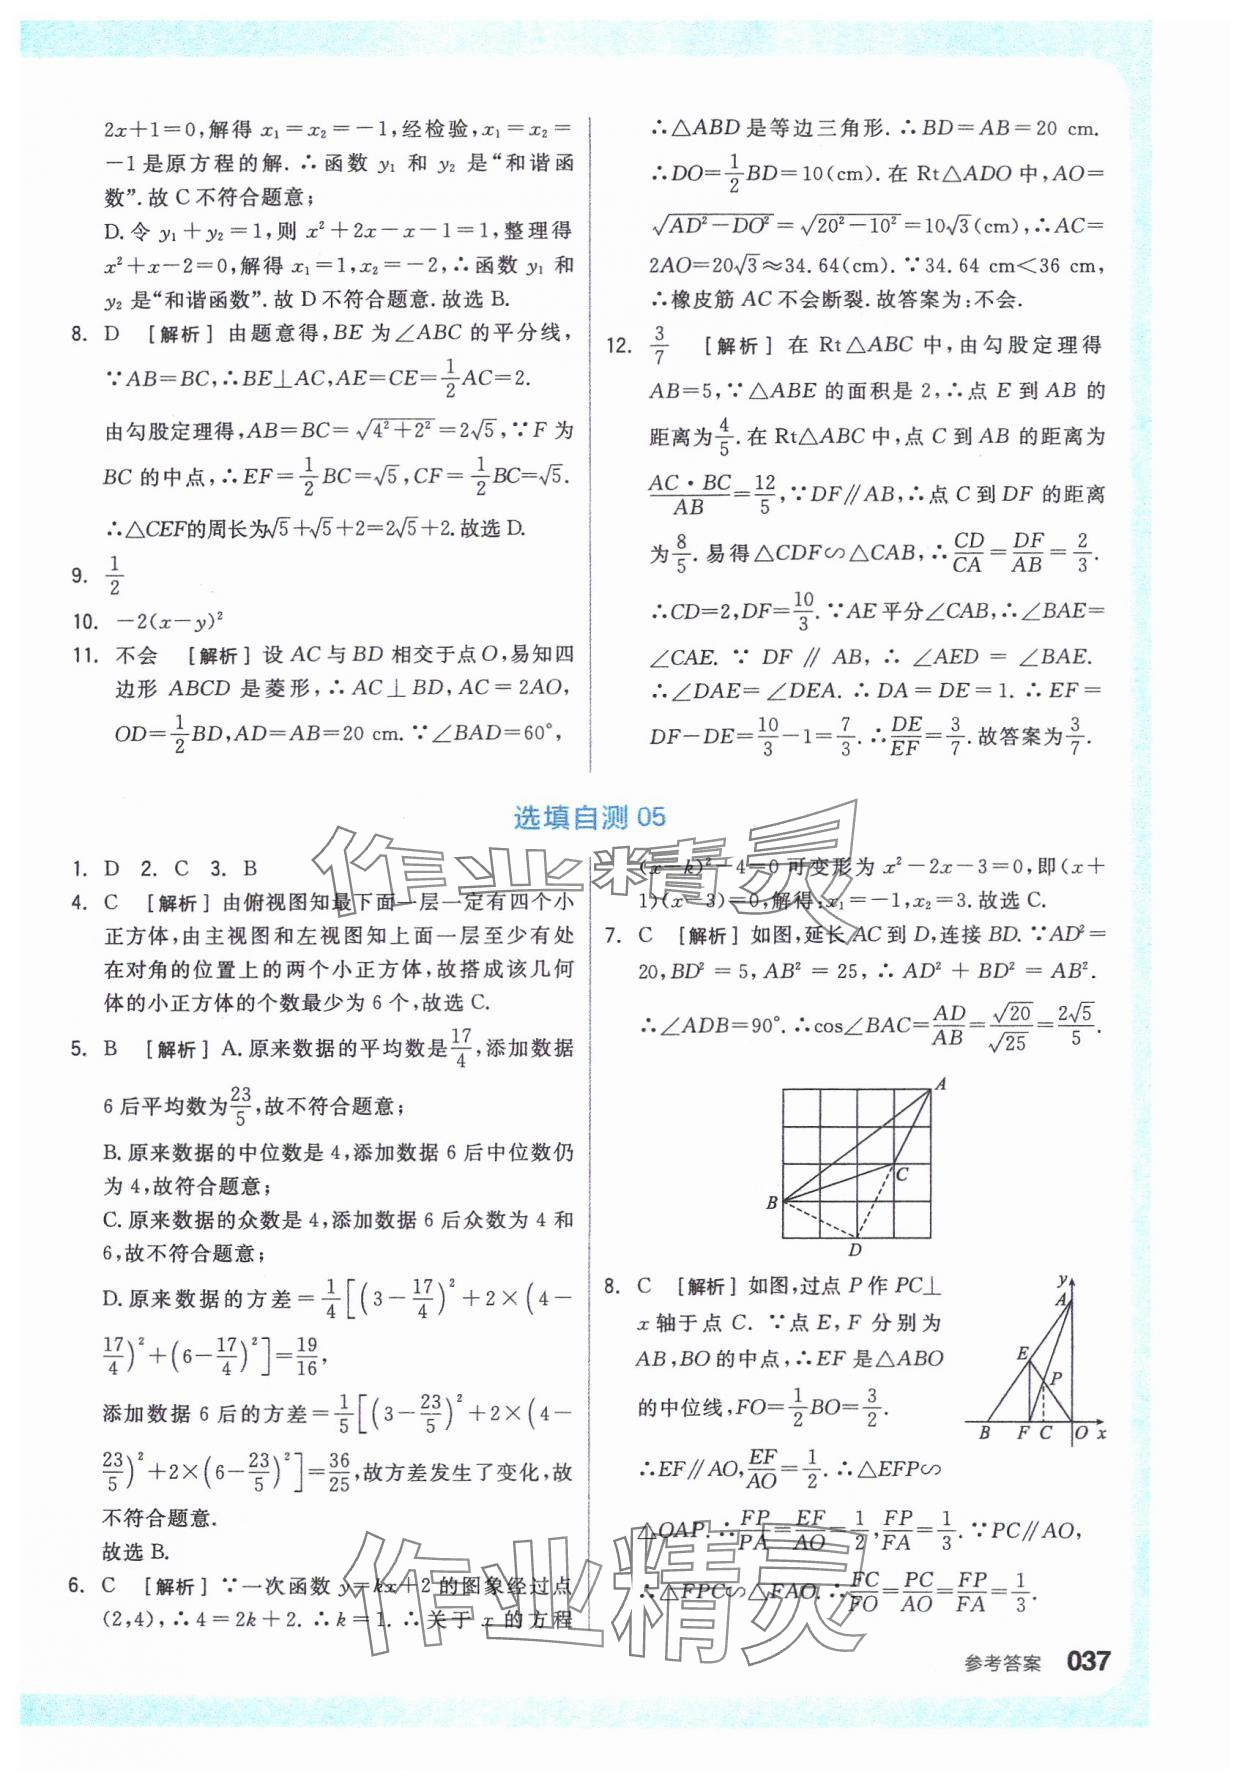 2x+1=0,解得 x₁=x₂=-1,经检验,x₁=x₂=
-1是原方程的解.∴函数 y₁ 和 y₂ 是“和谐函
数”.故 C 不符合题意;
D.令 y₁+y₂=1,则 x²+2x-x-1=1,整理得
x²+x-2=0,解得 x₁=1,x₂=-2,∴函数 y₁ 和
y₂ 是“和谐函数”.故 D 不符合题意.故选 B.
8. D [解析] 由题意得,BE 为∠ABC 的平分线,
∵AB=BC,∴BE⊥AC,AE=CE=1/2AC=2.
由勾股定理得,AB=BC=√(4²+2²)=2√5,∵F 为
BC 的中点,∴EF=1/2BC=√5,CF=1/2BC=√5.
∴△CEF的周长为√5+√5+2=2√5+2.故选 D.
9. 1/2
10. -2(x-y)²
11. 不会 [解析] 设 AC 与 BD 相交于点 O,易知四
边形 ABCD 是菱形,∴AC⊥BD,AC=2AO,
OD=1/2BD,AD=AB=20 cm.∵∠BAD=60°,
∴△ABD 是等边三角形.∴BD=AB=20 cm.
∴DO=1/2BD=10(cm).在 Rt△ADO 中,AO=
√(AD²-DO²)=√(20²-10²)=10√3(cm),∴AC=
2AO=20√3≈34.64(cm).∵34.64 cm<36 cm,
∴橡皮筋 AC 不会断裂.故答案为:不会.
12. 3/7 [解析] 在 Rt△ABC 中,由勾股定理得
AB=5,∵△ABE 的面积是 2,∴点 E 到 AB 的
距离为4/5.在 Rt△ABC 中,点 C 到 AB 的距离为
AC·BC/AB=12/5,∵DF∥AB,∴点 C 到 DF 的距离
为8/5.易得△CDF∽△CAB,∴CD/CA=DF/AB=2/3.
∴CD=2,DF=10/3.∵AE 平分∠CAB,∴∠BAE=
∠CAE.∵DF∥AB,∴∠AED=∠BAE.
∴∠DAE=∠DEA.∴DA=DE=1.∴EF=
DF-DE=10/3-1=7/3.∴DE/EF=3/7.故答案为3/7.
选填自测 05
1. D 2. C 3. B
4. C [解析] 由俯视图知最下面一层一定有四个小
正方体,由主视图和左视图知上面一层至少有处
在对角的位置上的两个小正方体,故搭成该几何
体的小正方体的个数最少为 6 个,故选 C.
5. B [解析] A.原来数据的平均数是17/4,添加数据
6 后平均数为23/5,故不符合题意;
B.原来数据的中位数是 4,添加数据 6 后中位数仍
为 4,故符合题意;
C.原来数据的众数是 4,添加数据 6 后众数为 4 和
6,故不符合题意;
D.原来数据的方差=1/4[(3-17/4)²+2×(4-
17/4)²+(6-17/4)²]=19/16,
添加数据 6 后的方差=1/5[(3-23/5)²+2×(4-
23/5)²+2×(6-23/5)²]=36/25,故方差发生了变化,故
不符合题意.
故选 B.
6. C [解析] ∵一次函数 y=kx+2 的图象经过点
(2,4),∴4=2k+2.∴k=1.∴关于 x 的方程
(x-k)²-4=0 可变形为 x²-2x-3=0,即(x+
1)(x-3)=0,解得:x₁=-1,x₂=3.故选 C.
7. C [解析] 如图,延长 AC 到 D,连接 BD.∵AD²=
20,BD²=5,AB²=25,∴AD²+BD²=AB².
∴∠ADB=90°.∴cos∠BAC=AD/AB=√20/√25=2√5/5.
A
C
B
D
8. C [解析] 如图,过点 P 作 PC⊥
x 轴于点 C.∵点 E,F 分别为
AB,BO 的中点,∴EF 是△ABO
的中位线,FO=1/2BO=3/2.
∴EF∥AO,EF/AO=1/2.∴△EFP∽
△OAP.∴FP/PA=EF/AO=1/2,FP/FA=1/3.∵PC∥AO,
∴△FPC∽△FAO.∴FC/FO=PC/AO=FP/FA=1/3.
y
A
E
P
B F C O x
作业精灵
作业精灵
参考答案 037